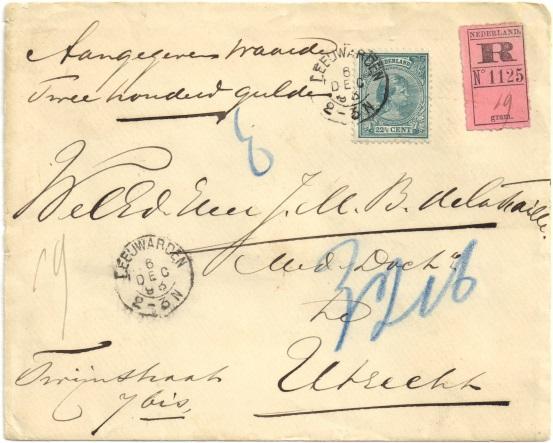 Aangegeven waarde
Twee honderd gulden
NEDERLAND
22½ CENT
LEEUWARDEN
6
DEC
NEDERLAND.
R
No 1125
19
gram.
WelEd Heer J. M. B. de la Faille.
Med. Doctr
te
Utrecht
LEEUWARDEN
6
DEC
19
Twijnstraat
7 bis